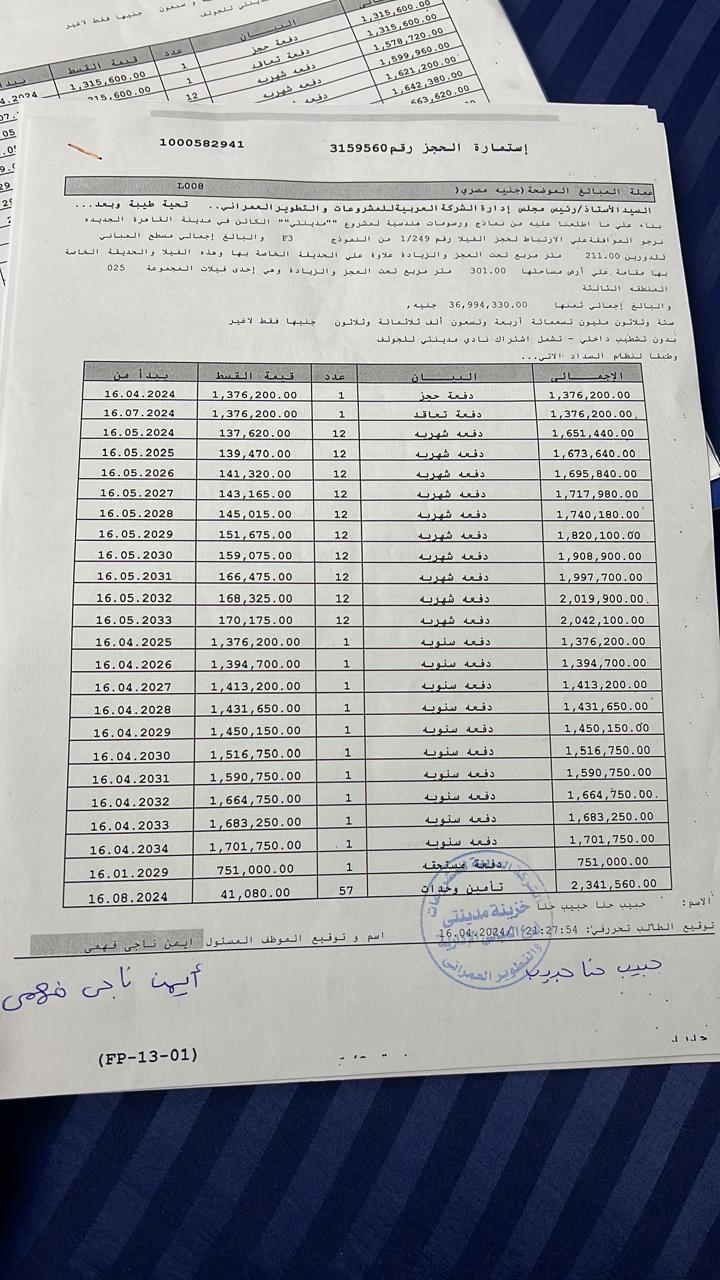 1,315,600.00
دفعة حجز 1,315,600.00
قيمة القسط عدد البيـــــان 1,578,720.00
1,315,600.00 1 دفعة تعاقد 1,599,960.00
1 دفعه شهريه 1,621,200.00
12 دفعه شهريه 1,642,380.00
إستمارة الحجز رقم 3159560 1000582941
عملة المبالغ الموضحة(جنيه مصري( L008
السيدالأستاذ/رئيس مجلس إدارة الشركة العربيةللمشروعات والتطويرالعمراني.. تحية طيبة وبعد...
بناء علي ما اطلعنا عليه من نماذج ورسومات هندسية لمشروع ""مدينتي"" الكائن في مدينة القاهرة الجديده
نرجو الموافقةعلي الارتباط لحجز الفيلا رقم 1/249 من النموذج F3 والبالغ إجمالي مسطح المباني
للدورين 211.00 متر مربع تحت العجز والزيادة علاوة علي الحديقة الخاصة بها وهذه الفيلا والحديقة الخاصة
بها مقامة علي أرض مساحتها 301.00 متر مربع تحت العجز والزيادة وهي إحدى فيلات المجموعة 025
المنطقه الثالثة
والبالغ إجمالي ثمنها 36,994,330.00 جنيه,
ستة وثلاثون مليون تسعمائة أربعة وتسعون ألف ثلاثمائة وثلاثون جنيها فقط لاغير
بدون تشطيب داخلي - تشمل اشتراك نادي مدينتي للجولف
وطبقا لنظام السداد الاتي...
الإجمـــالى البيـــــان عدد قيمة القسط يبدأ من
1,376,200.00 دفعة حجز 1 1,376,200.00 16.04.2024
1,376,200.00 دفعة تعاقد 1 1,376,200.00 16.07.2024
1,651,440.00 دفعه شهريه 12 137,620.00 16.05.2024
1,673,640.00 دفعه شهريه 12 139,470.00 16.05.2025
1,695,840.00 دفعه شهريه 12 141,320.00 16.05.2026
1,717,980.00 دفعه شهريه 12 143,165.00 16.05.2027
1,740,180.00 دفعه شهريه 12 145,015.00 16.05.2028
1,820,100.00 دفعه شهريه 12 151,675.00 16.05.2029
1,908,900.00 دفعه شهريه 12 159,075.00 16.05.2030
1,997,700.00 دفعه شهريه 12 166,475.00 16.05.2031
2,019,900.00 دفعه شهريه 12 168,325.00 16.05.2032
2,042,100.00 دفعه شهريه 12 170,175.00 16.05.2033
1,376,200.00 دفعه سنويه 1 1,376,200.00 16.04.2025
1,394,700.00 دفعه سنويه 1 1,394,700.00 16.04.2026
1,413,200.00 دفعه سنويه 1 1,413,200.00 16.04.2027
1,431,650.00 دفعه سنويه 1 1,431,650.00 16.04.2028
1,450,150.00 دفعه سنويه 1 1,450,150.00 16.04.2029
1,516,750.00 دفعه سنويه 1 1,516,750.00 16.04.2030
1,590,750.00 دفعه سنويه 1 1,590,750.00 16.04.2031
1,664,750.00 دفعه سنويه 1 1,664,750.00 16.04.2032
1,683,250.00 دفعه سنويه 1 1,683,250.00 16.04.2033
1,701,750.00 دفعه سنويه 1 1,701,750.00 16.04.2034
751,000.00 دفعة مستحقه 1 751,000.00 16.01.2029
2,341,560.00 تأمين وحدات 57 41,080.00 16.08.2024
الاسم: حبيب حنا حبيب حنا
توقيع الطالب تحريرفي: 21:27:54 /16.04.2024 اسم و توقيع الموظف المسئول ايمن ناجى فهمى
خزينة مدينتي
والتطوير العمراني
حبيب حنا حبيب
أيمن ناجى فهمى
(FP-13-01)